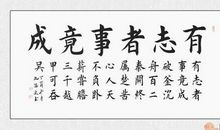 有志者事竟成
有志者
事竟成
破釜沉
舟百二
秦關終
屬楚苦
心人天
不負臥
薪嘗膽
三千越
甲可吞
吳